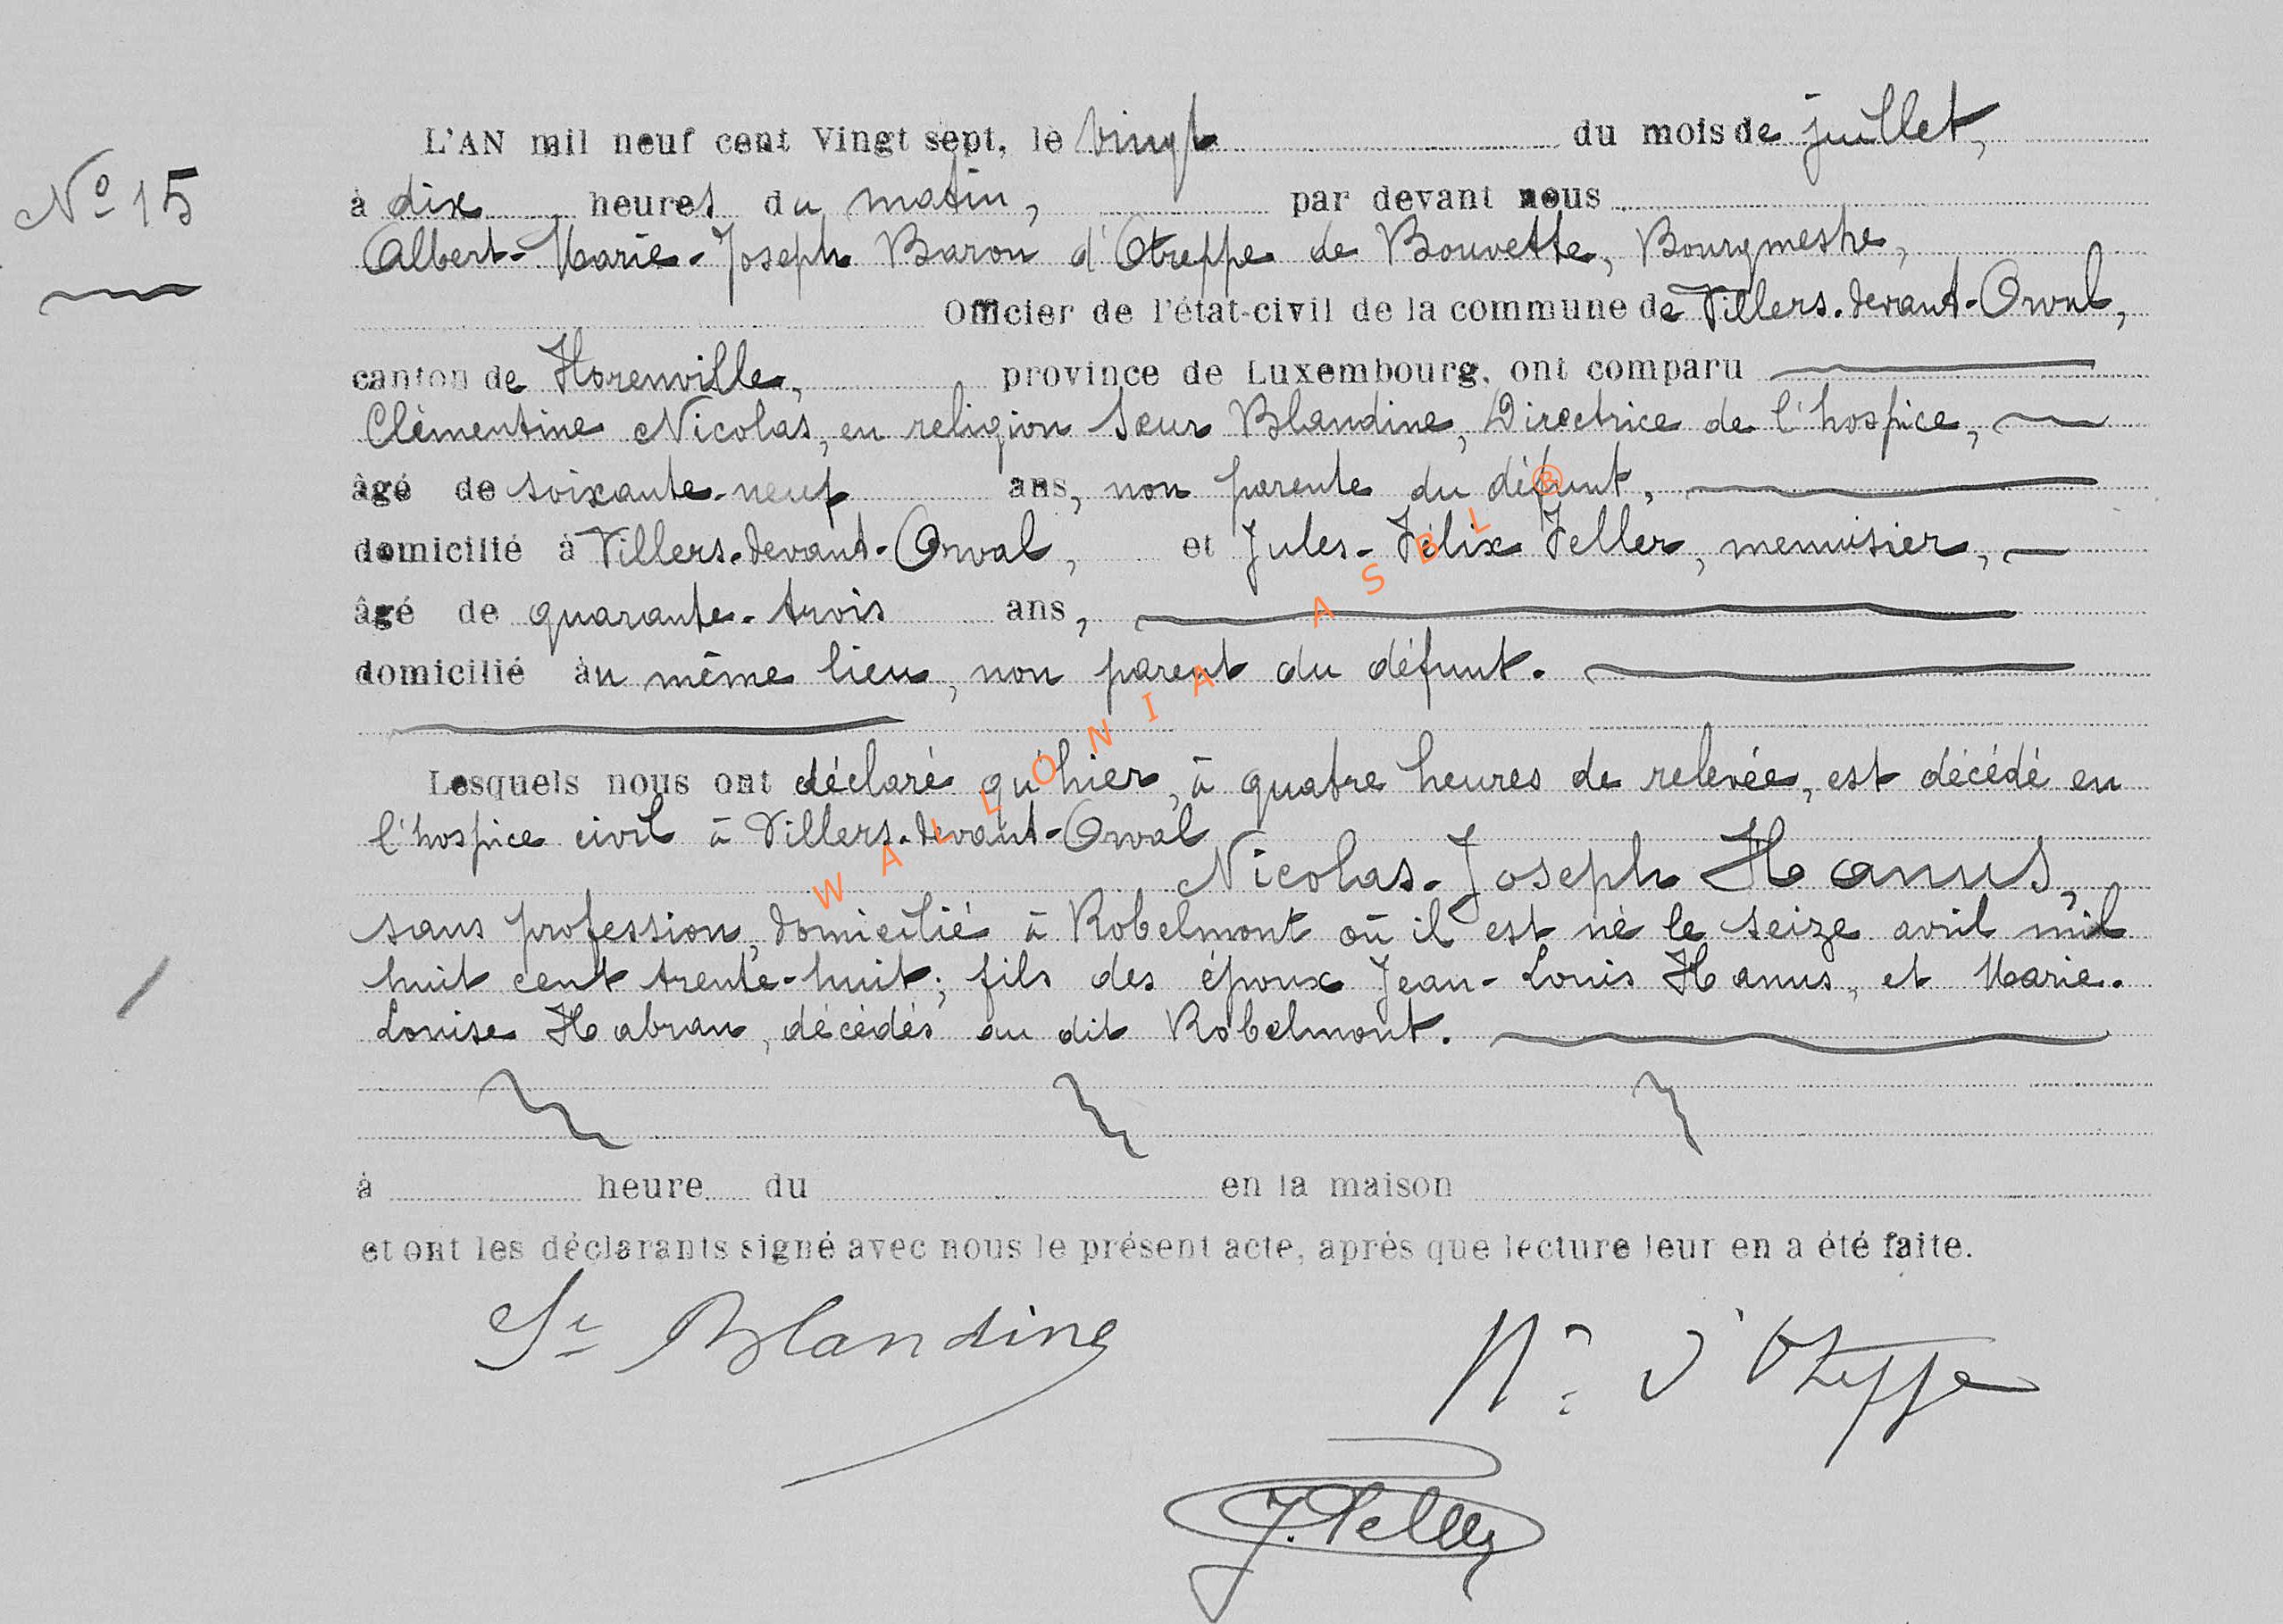 L'AN mil neuf cent Vingt sept, le vingt du mois de juillet,
N° 15
à dix heures du matin, par devant nous
Albert-Marie-Joseph Baron d'Otreppe de Bouvette, Bourgmestre,
Officier de l'état-civil de la commune de Villers-devant-Orval,
canton de Florenville, province de Luxembourg, ont comparu
Clémentine Nicolas, en religion Sœur Blandine, Directrice de l'hospice,
âgé de soixante-neuf ans, non parente du défunt,
domicilié à Villers-devant-Orval, et Jules-Félix Feller, menuisier,
âgé de quarante-trois ans,
domicilié au même lieu, non parent du défunt.
Lesquels nous ont déclaré qu'hier, à quatre heures de relevée, est décédé en
l'hospice civil à Villers-devant-Orval
Nicolas-Joseph Hanus,
sans profession, domicilié à Robelmont où il est né le seize avril mil
huit cent trente-huit; fils des époux Jean-Louis Hanus, et Marie-
Louise Habran, décédés au dit Robelmont.
à heure du en la maison
et ont les déclarants signé avec nous le présent acte, après que lecture leur en a été faite.
Sr Blandine
d'Otreppe
J. Feller
WALLONIA ASBL ®